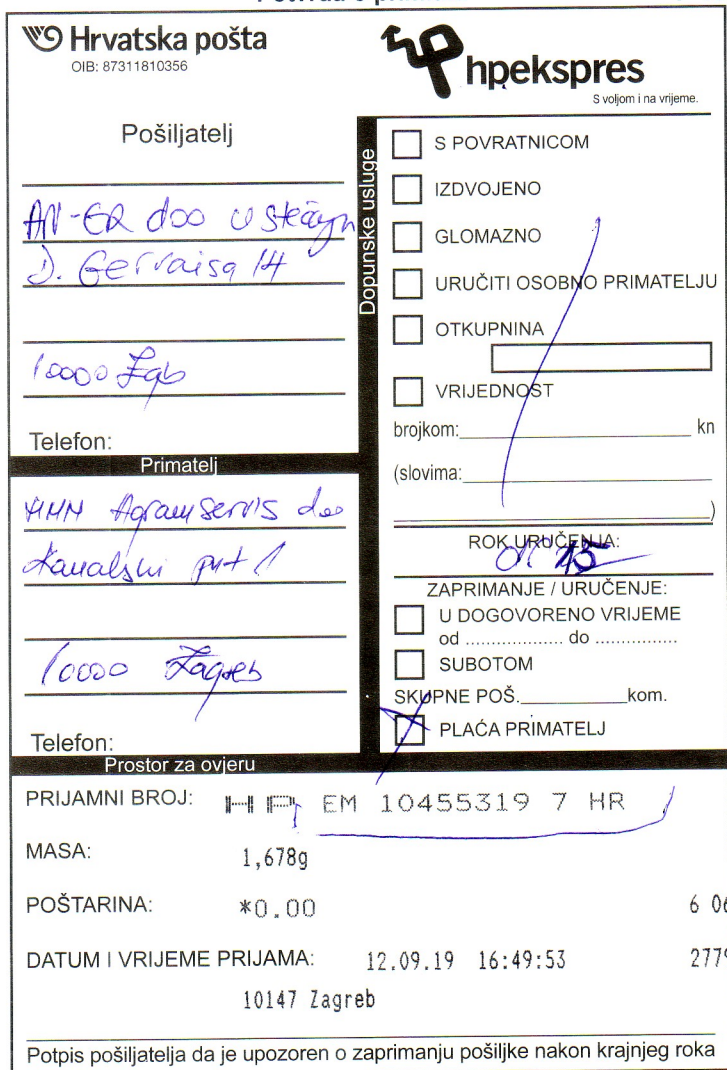 Hrvatska pošta
OIB: 87311810356
hpekspres
S voljom i na vrijeme.
Pošiljatelj
AN-ER doo u stečaju
D. Gervaisa 14
10000 Zgb
Telefon:
Primatelj
Agramservis doo
Kanalski put 1
10000 Zagreb
Telefon:
Dopunske usluge
S POVRATNICOM
IZDVOJENO
GLOMAZNO
URUČITI OSOBNO PRIMATELJU
OTKUPNINA
VRIJEDNOST
brojkom: kn
(slovima:
)
ROK URUČENJA:
ZAPRIMANJE / URUČENJE:
U DOGOVORENO VRIJEME
od .................. do ...............
SUBOTOM
SKUPNE POŠ. kom.
PLAĆA PRIMATELJ
Prostor za ovjeru
PRIJAMNI BROJ: HP EM 10455319 7 HR
MASA: 1,678g
POŠTARINA: *0.00 6 06
DATUM I VRIJEME PRIJAMA: 12.09.19 16:49:53 2779
10147 Zagreb
Potpis pošiljatelja da je upozoren o zaprimanju pošiljke nakon krajnjeg roka